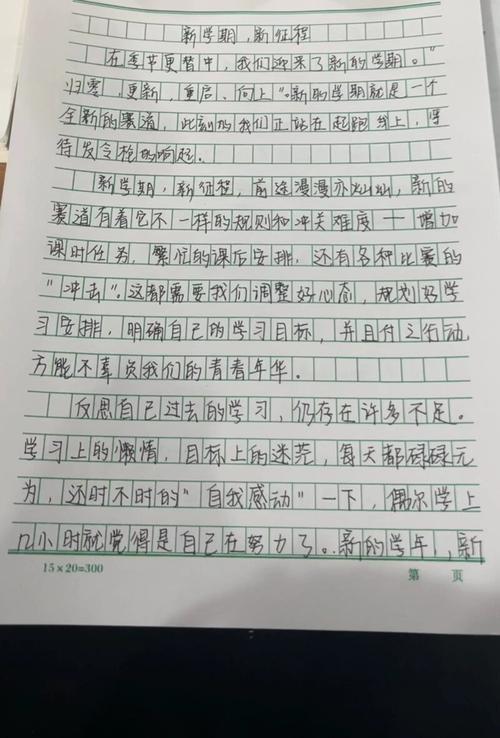 新学期,新征程
在季节更替中,我们迎来了新的学期。"
归零,更新,重启、向上"。新的学期就是一个
全新的赛道,此刻的我们正站在起跑线上,等
待发令枪的响起。
新学期,新征程,前途漫漫亦灿灿,新的
赛道有着它不一样的规则和冲关难度——增加
课时任务,繁忙的课后安排,还有各种比赛的
"冲击"。这都需要我们调整好心态,规划好学
习安排,明确自己的学习目标,并且付之行动,
方能不辜负我们的青春年华。
反思自己过去的学习,仍存在许多不足。
学习上的懒惰,目标上的迷茫,每天都碌碌无
为,还时不时的"自我感动"一下,偶尔学上
几小时就觉得是自己在努力了。新的学年,,新
15×20=300
第 页